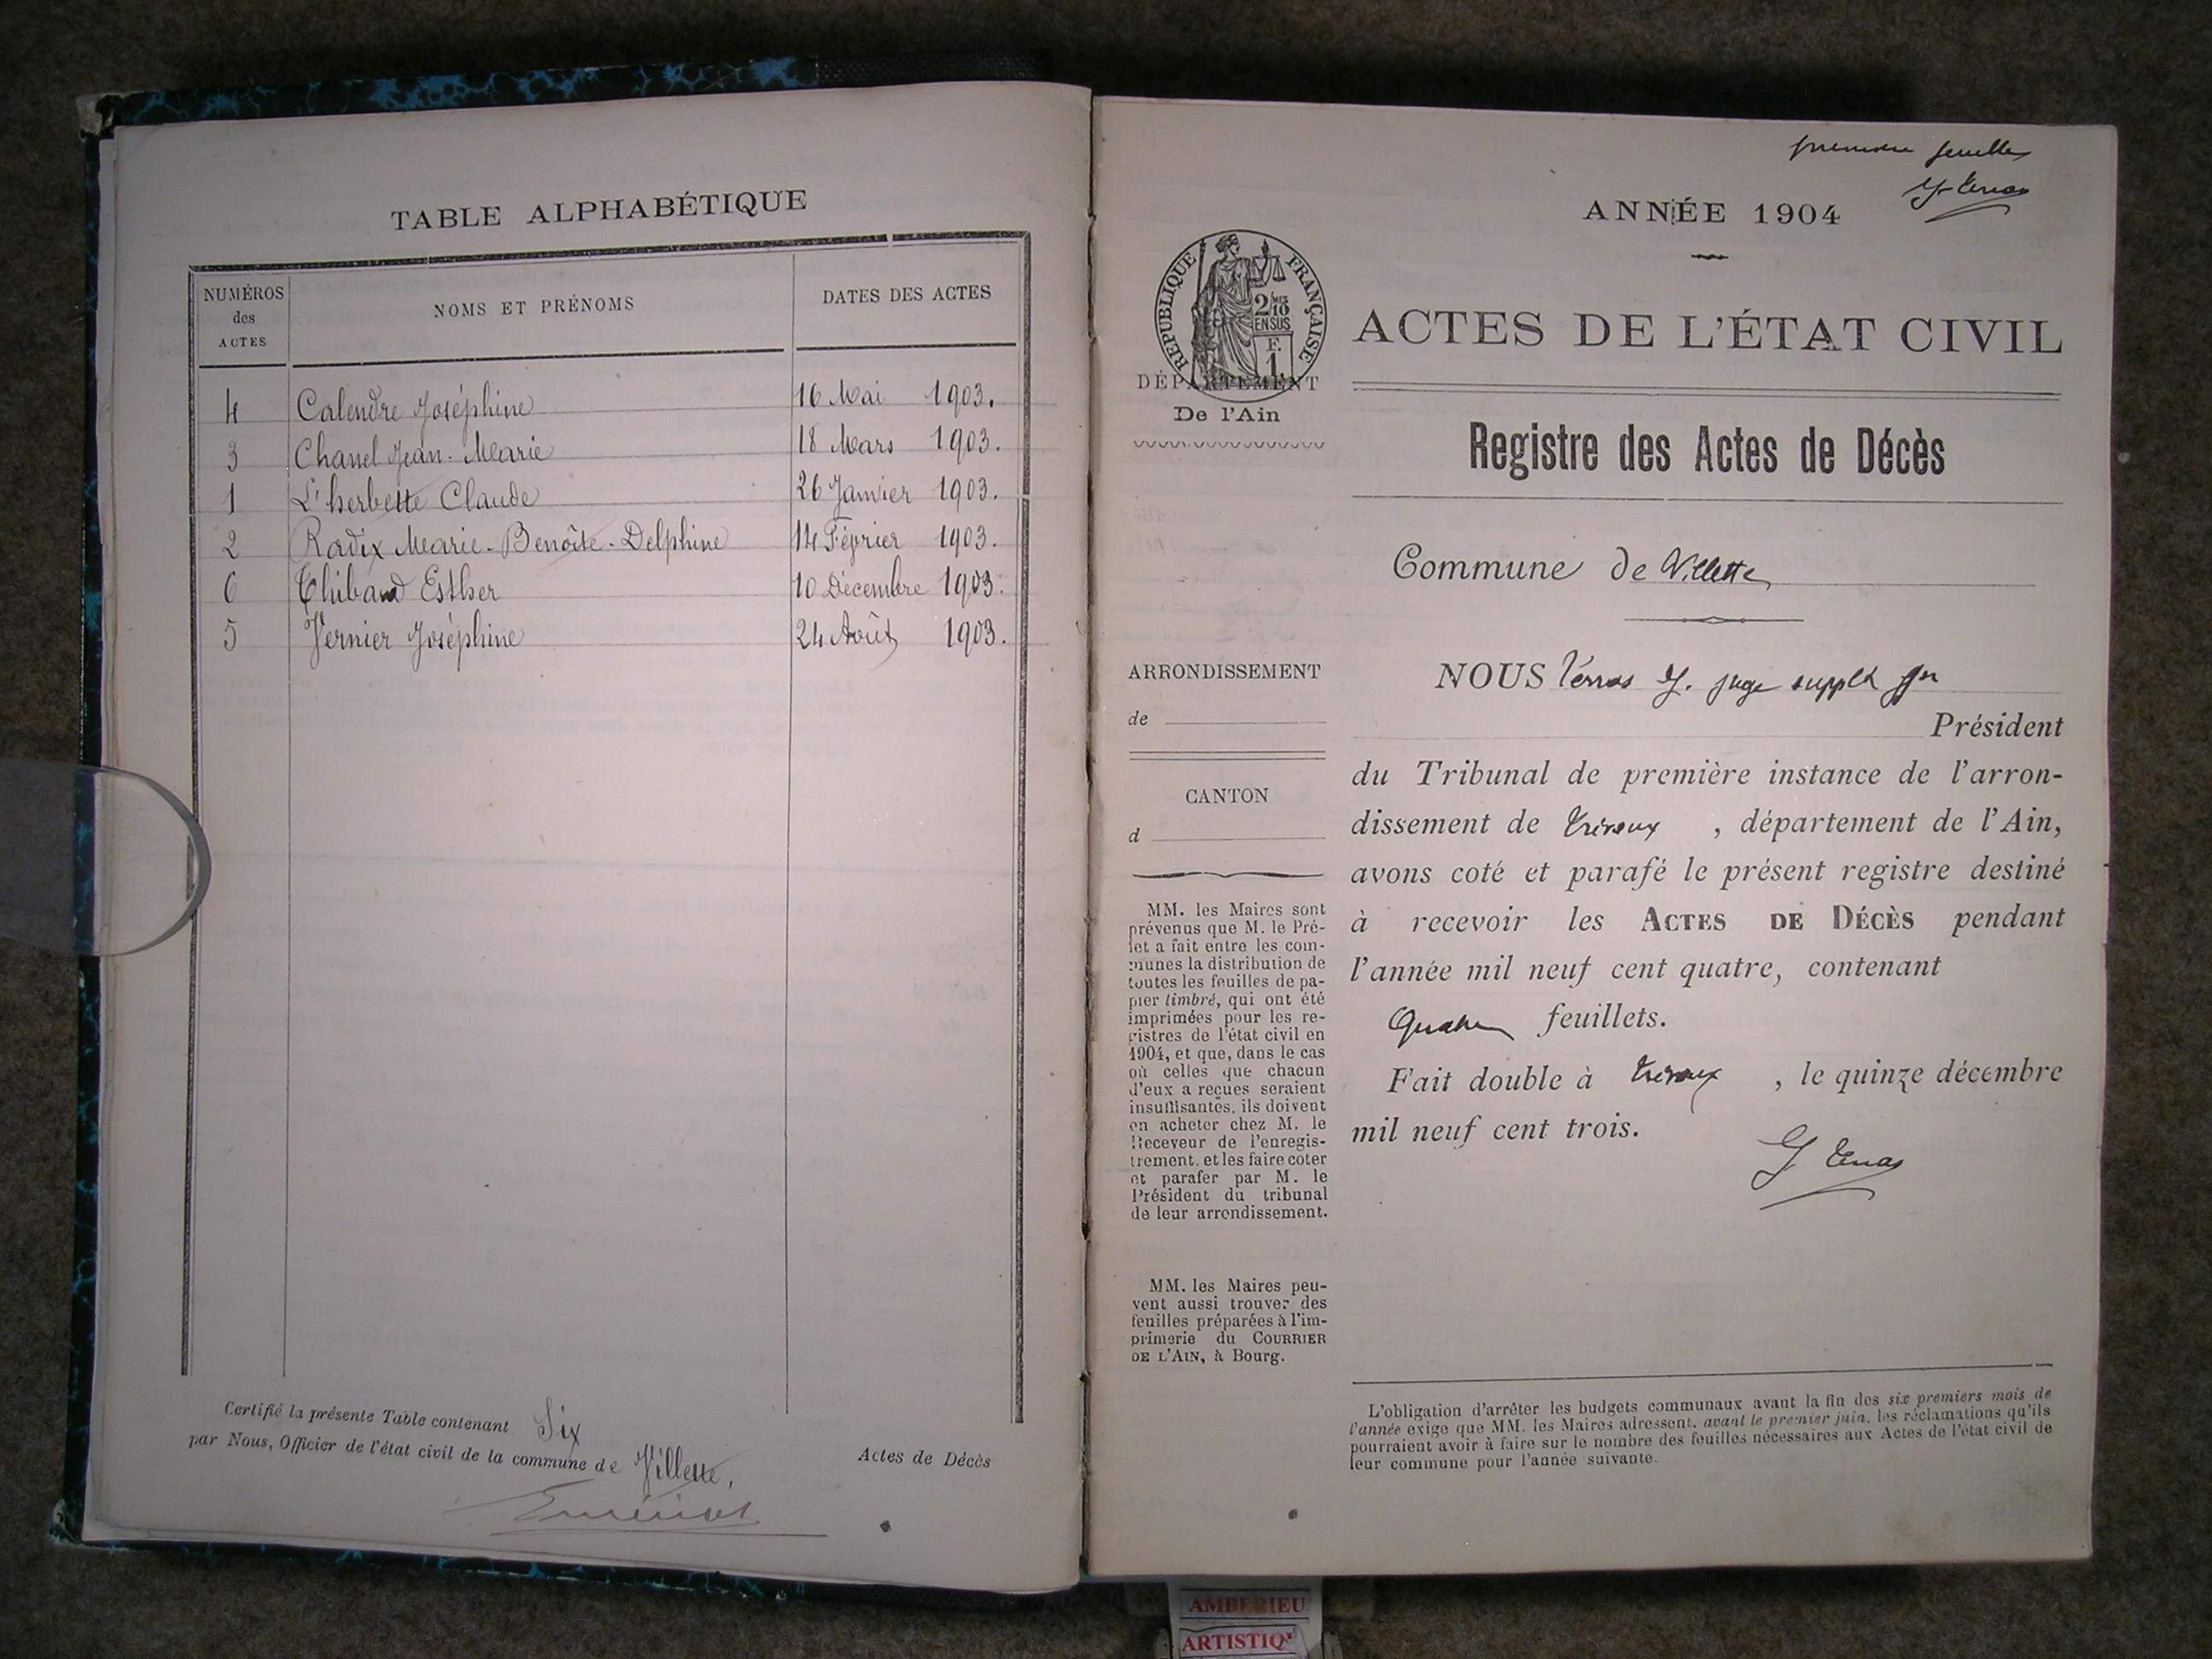 TABLE ALPHABÉTIQUE
NUMÉROS
des
ACTES
NOMS ET PRÉNOMS
DATES DES ACTES
4 Calendre Joséphine 16 Mai 1903.
3 Chanel Jean-Marie 18 Mars 1903.
1 L'herbette Claude 26 Janvier 1903.
2 Radix Marie-Benoîte-Delphine 14 Février 1903.
6 Thibaud Esther 10 Décembre 1903.
5 Vernier Joséphine 24 Août 1903.
Certifié la présente Table contenant Six
Actes de Décès
par Nous, Officier de l'état civil de la commune de Villette.
première feuille
ANNÉE 1904
RÉPUBLIQUE FRANÇAISE
2/10
EN SUS
F.
1
DÉPARTEMENT
De l'Ain
ACTES DE L'ÉTAT CIVIL
Registre des Actes de Décès
Commune de Villette
ARRONDISSEMENT
de
CANTON
d
MM. les Maires sont
prévenus que M. le Pré-
fet a fait entre les com-
munes la distribution de
toutes les feuilles de pa-
pier timbré, qui ont été
imprimées pour les re-
gistres de l'état civil en
1904, et que, dans le cas
où celles que chacun
d'eux a reçues seraient
insuffisantes, ils doivent
en acheter chez M. le
Receveur de l'enregis-
trement, et les faire coter
et parafer par M. le
Président du tribunal
de leur arrondissement.
MM. les Maires peu-
vent aussi trouver des
feuilles préparées à l'im-
primerie du COURRIER
DE L'AIN, à Bourg.
NOUS juge suppl
Président
du Tribunal de première instance de l'arron-
dissement de Trévoux , département de l'Ain,
avons coté et parafé le présent registre destiné
à recevoir les ACTES DE DÉCÈS pendant
l'année mil neuf cent quatre, contenant
Quatre feuillets.
Fait double à Trévoux , le quinze décembre
mil neuf cent trois.
L'obligation d'arrêter les budgets communaux avant la fin des six premiers mois de
l'année exige que MM. les Maires adressent, avant le premier juin, les réclamations qu'ils
pourraient avoir à faire sur le nombre des feuilles nécessaires aux Actes de l'état civil de
leur commune pour l'année suivante.
AMBERIEU
ARTISTIQ